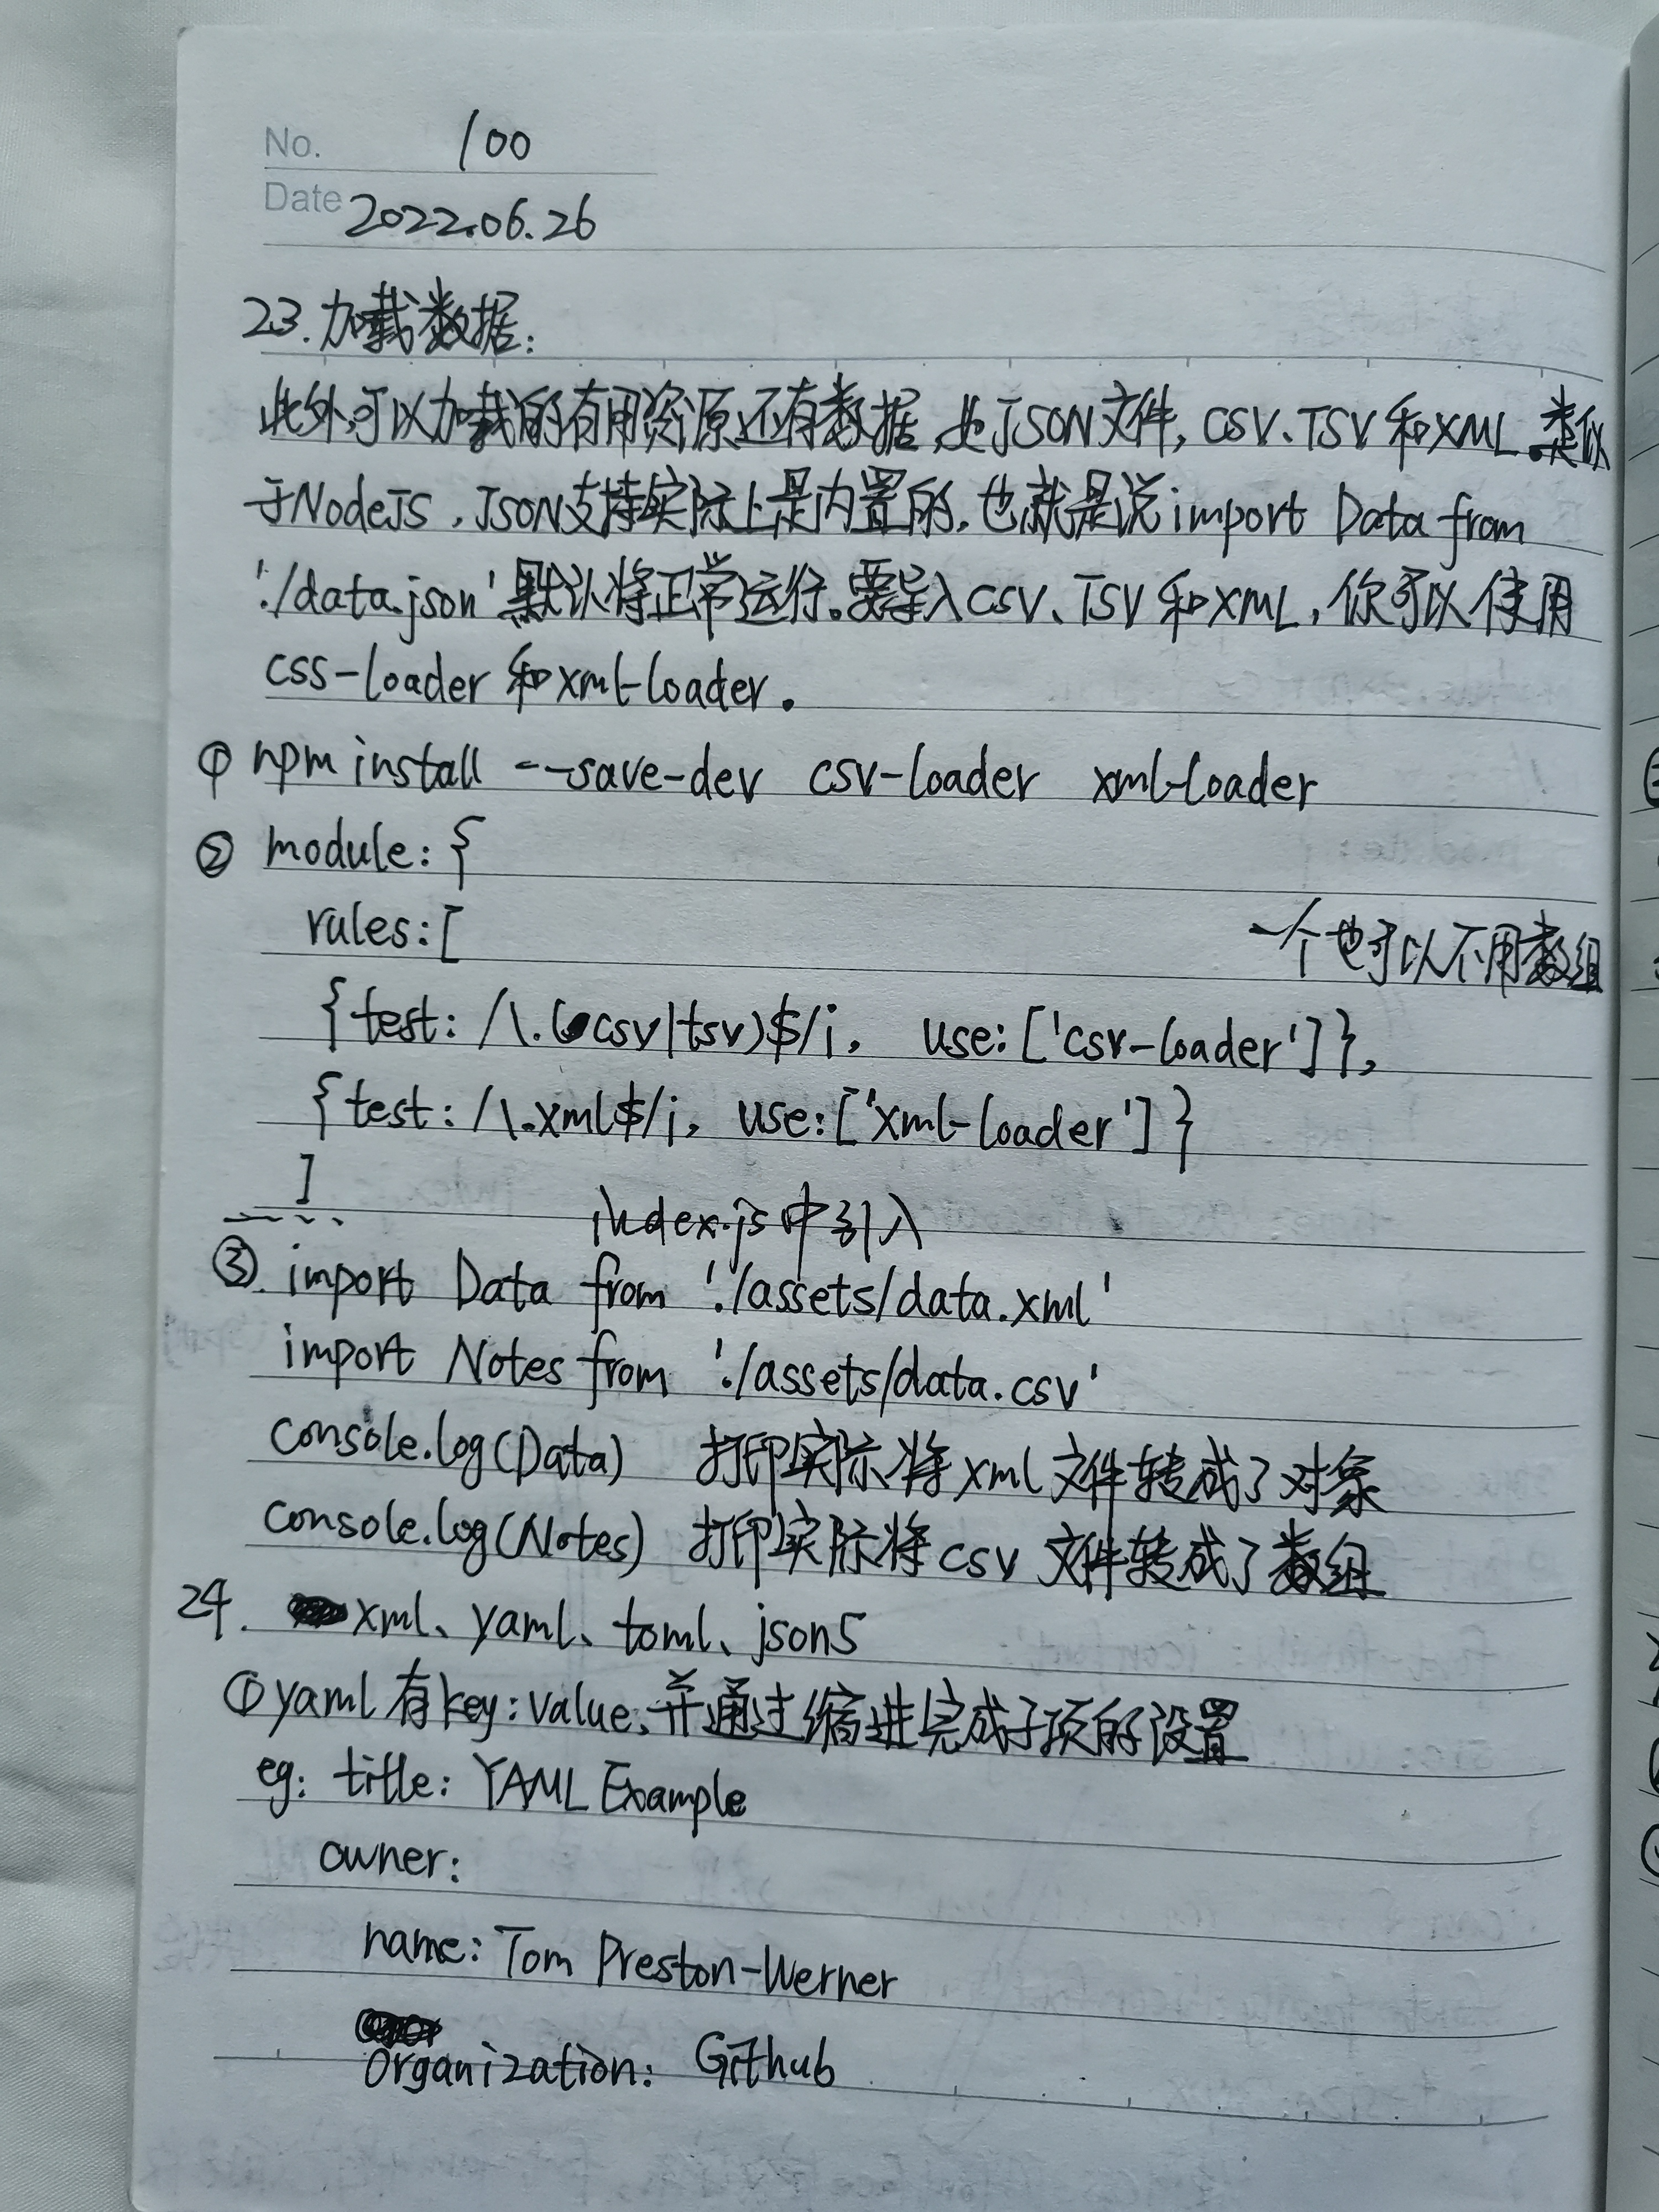 No. 100
Date 2022.06.26
23.加载数据:
此外,可以加载的有用资源还有数据,如JSON文件,CSV、TSV和XML。类似
于NodeJS,JSON支持实际上是内置的,也就是说import Data from
'./data.json'默认将正常运行。要导入CSV、TSV和XML,你可以使用
css-loader和xml-loader。
① npm install --save-dev csv-loader xml-loader
② module: {
rules: [
一个也可以不用数组
{test: /\.(csv|tsv)$/i, use: ['csv-loader']},
{test: /\.xml$/i, use: ['xml-loader']}
]
index.js中引入
③. import Data from './assets/data.xml'
import Notes from './assets/data.csv'
console.log(Data) 打印实际将xml文件转成了对象
console.log(Notes) 打印实际将csv文件转成了数组
24. xml、yaml、toml、json5
① yaml有key:value,并通过缩进完成子项的设置
eg: title: YAML Example
owner:
name: Tom Preston-Werner
Organization: Github